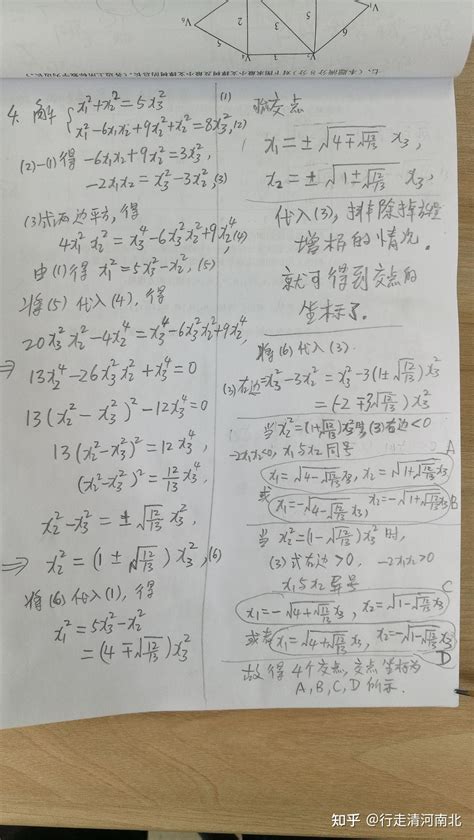 4. 解 { x₁²+x₂²=5x₃² (1)
x₁²-6x₁x₂+9x₂²+x₂²=8x₃², (2)
(2)-(1)得 -6x₁x₂+9x₂²=3x₃²,
-2x₁x₂=x₃²-3x₂², (3)
(3)式两边平方,得
4x₁²x₂²=x₃⁴-6x₃²x₂²+9x₂⁴, (4)
由(1)得 x₁²=5x₃²-x₂², (5)
将(5)代入(4),得
20x₃²x₂²-4x₂⁴=x₃⁴-6x₃²x₂²+9x₂⁴,
⇒ 13x₂⁴-26x₃²x₂²+x₃⁴=0
13(x₂²-x₃²)²-12x₃⁴=0
13(x₂²-x₃²)²=12x₃⁴,
(x₂²-x₃²)²=12/13 x₃⁴,
x₂²-x₃²=±√(12/13) x₃²,
⇒ x₂²=(1±√(12/13))x₃², (6)
将(6)代入(1),得
x₁²=5x₃²-x₂²
=(4∓√(12/13))x₃²
交点
x₁=±√(4∓√(12/13)) x₃,
x₂=±√(1±√(12/13)) x₃.
代入(3),排除掉
增根的情况。
就可得到交点的
坐标了。
将(6)代入(3).
(3)右边=x₃²-3x₂²=x₃²-3(1±√(12/13))x₃²
=(-2∓3√(12/13))x₃²
当x₂²=(1+√(12/13))x₃²时,(3)右边<0
-2x₁x₂<0, x₁与x₂同号
x₁=√(4-√(12/13))x₃, x₂=√(1+√(12/13))x₃ A
或 x₁=-√(4-√(12/13))x₃, x₂=-√(1+√(12/13))x₃ B
当 x₂²=(1-√(12/13))x₃²时,
(3)式右边>0, -2x₁x₂>0
x₁与x₂异号
x₁=-√(4+√(12/13))x₃, x₂=√(1-√(12/13))x₃ C
或者 x₁=√(4+√(12/13))x₃, x₂=-√(1-√(12/13))x₃ D
故得4个交点,交点坐标为
A,B,C,D所示.
知乎 @行走清河南北